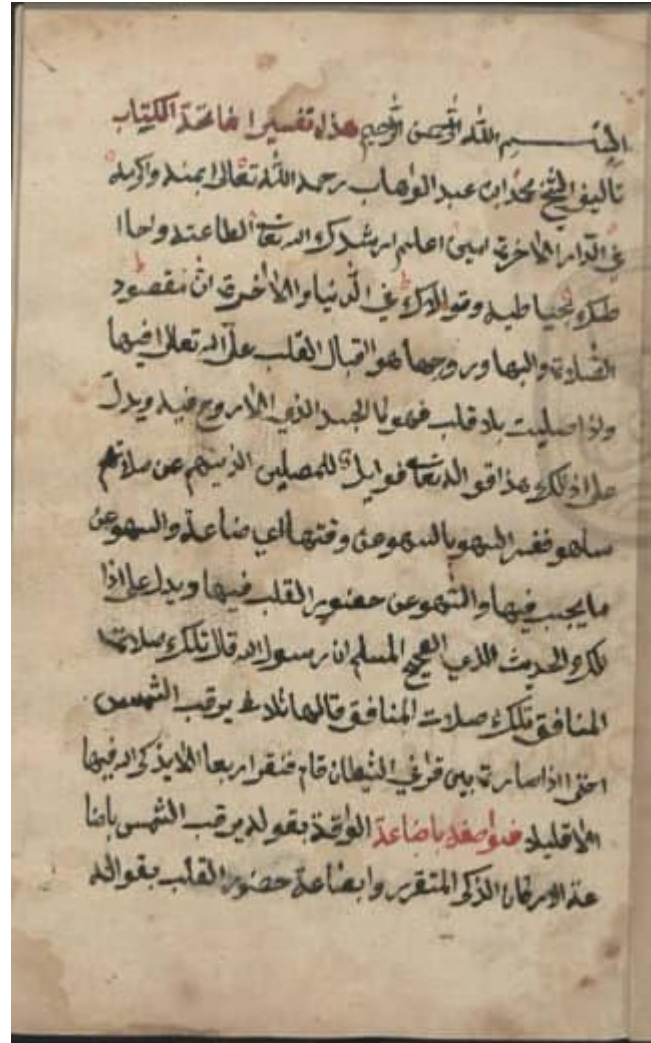 بسم الله الرحمن الرحيم هذه تفسير الفاتحة الكتاب
تاليف الشيخ محمد ابن عبد الوهاب رحمه الله تعالى بمنه واكرمه
في الدار الاخرة امين اعلم ارشدك الله تعالى الطاعته واحا
طك بحياطيه وتولاك في الدنيا والاخرة ان مقصود
الصلوة والبها وروحها هو اقبال القلب على الله تعالى فيها
واذا صليت بلا قلب فهو كالجسد الذي الاروح فيه ويدل
على اذلك هذا قوالله تعالى فوايل للمصلين الذينهم عن صلاتهم
ساهو ففسر السهو بالسهو عن وقتها اي ضاعة والسهو عن
ما يجب فيها والسهو عن حضور القلب فيها ويدل على اذا
لك الحديث الذي الصحيح المسلم ان رسول الله قال تلك صلات
المنافق تلك صلات المنافق قالها ثلاث يرقب الشمس
احتى اذا صارة بين قرني الشيطان قام فنقر اربعا الايذكر الله فيها
الاقليلا فواصفه باضاعة الوقة بقوله يرقب الشمس باضا
عة الاركان الذكر المتقرر وابضاعة حضور القلب بقواله